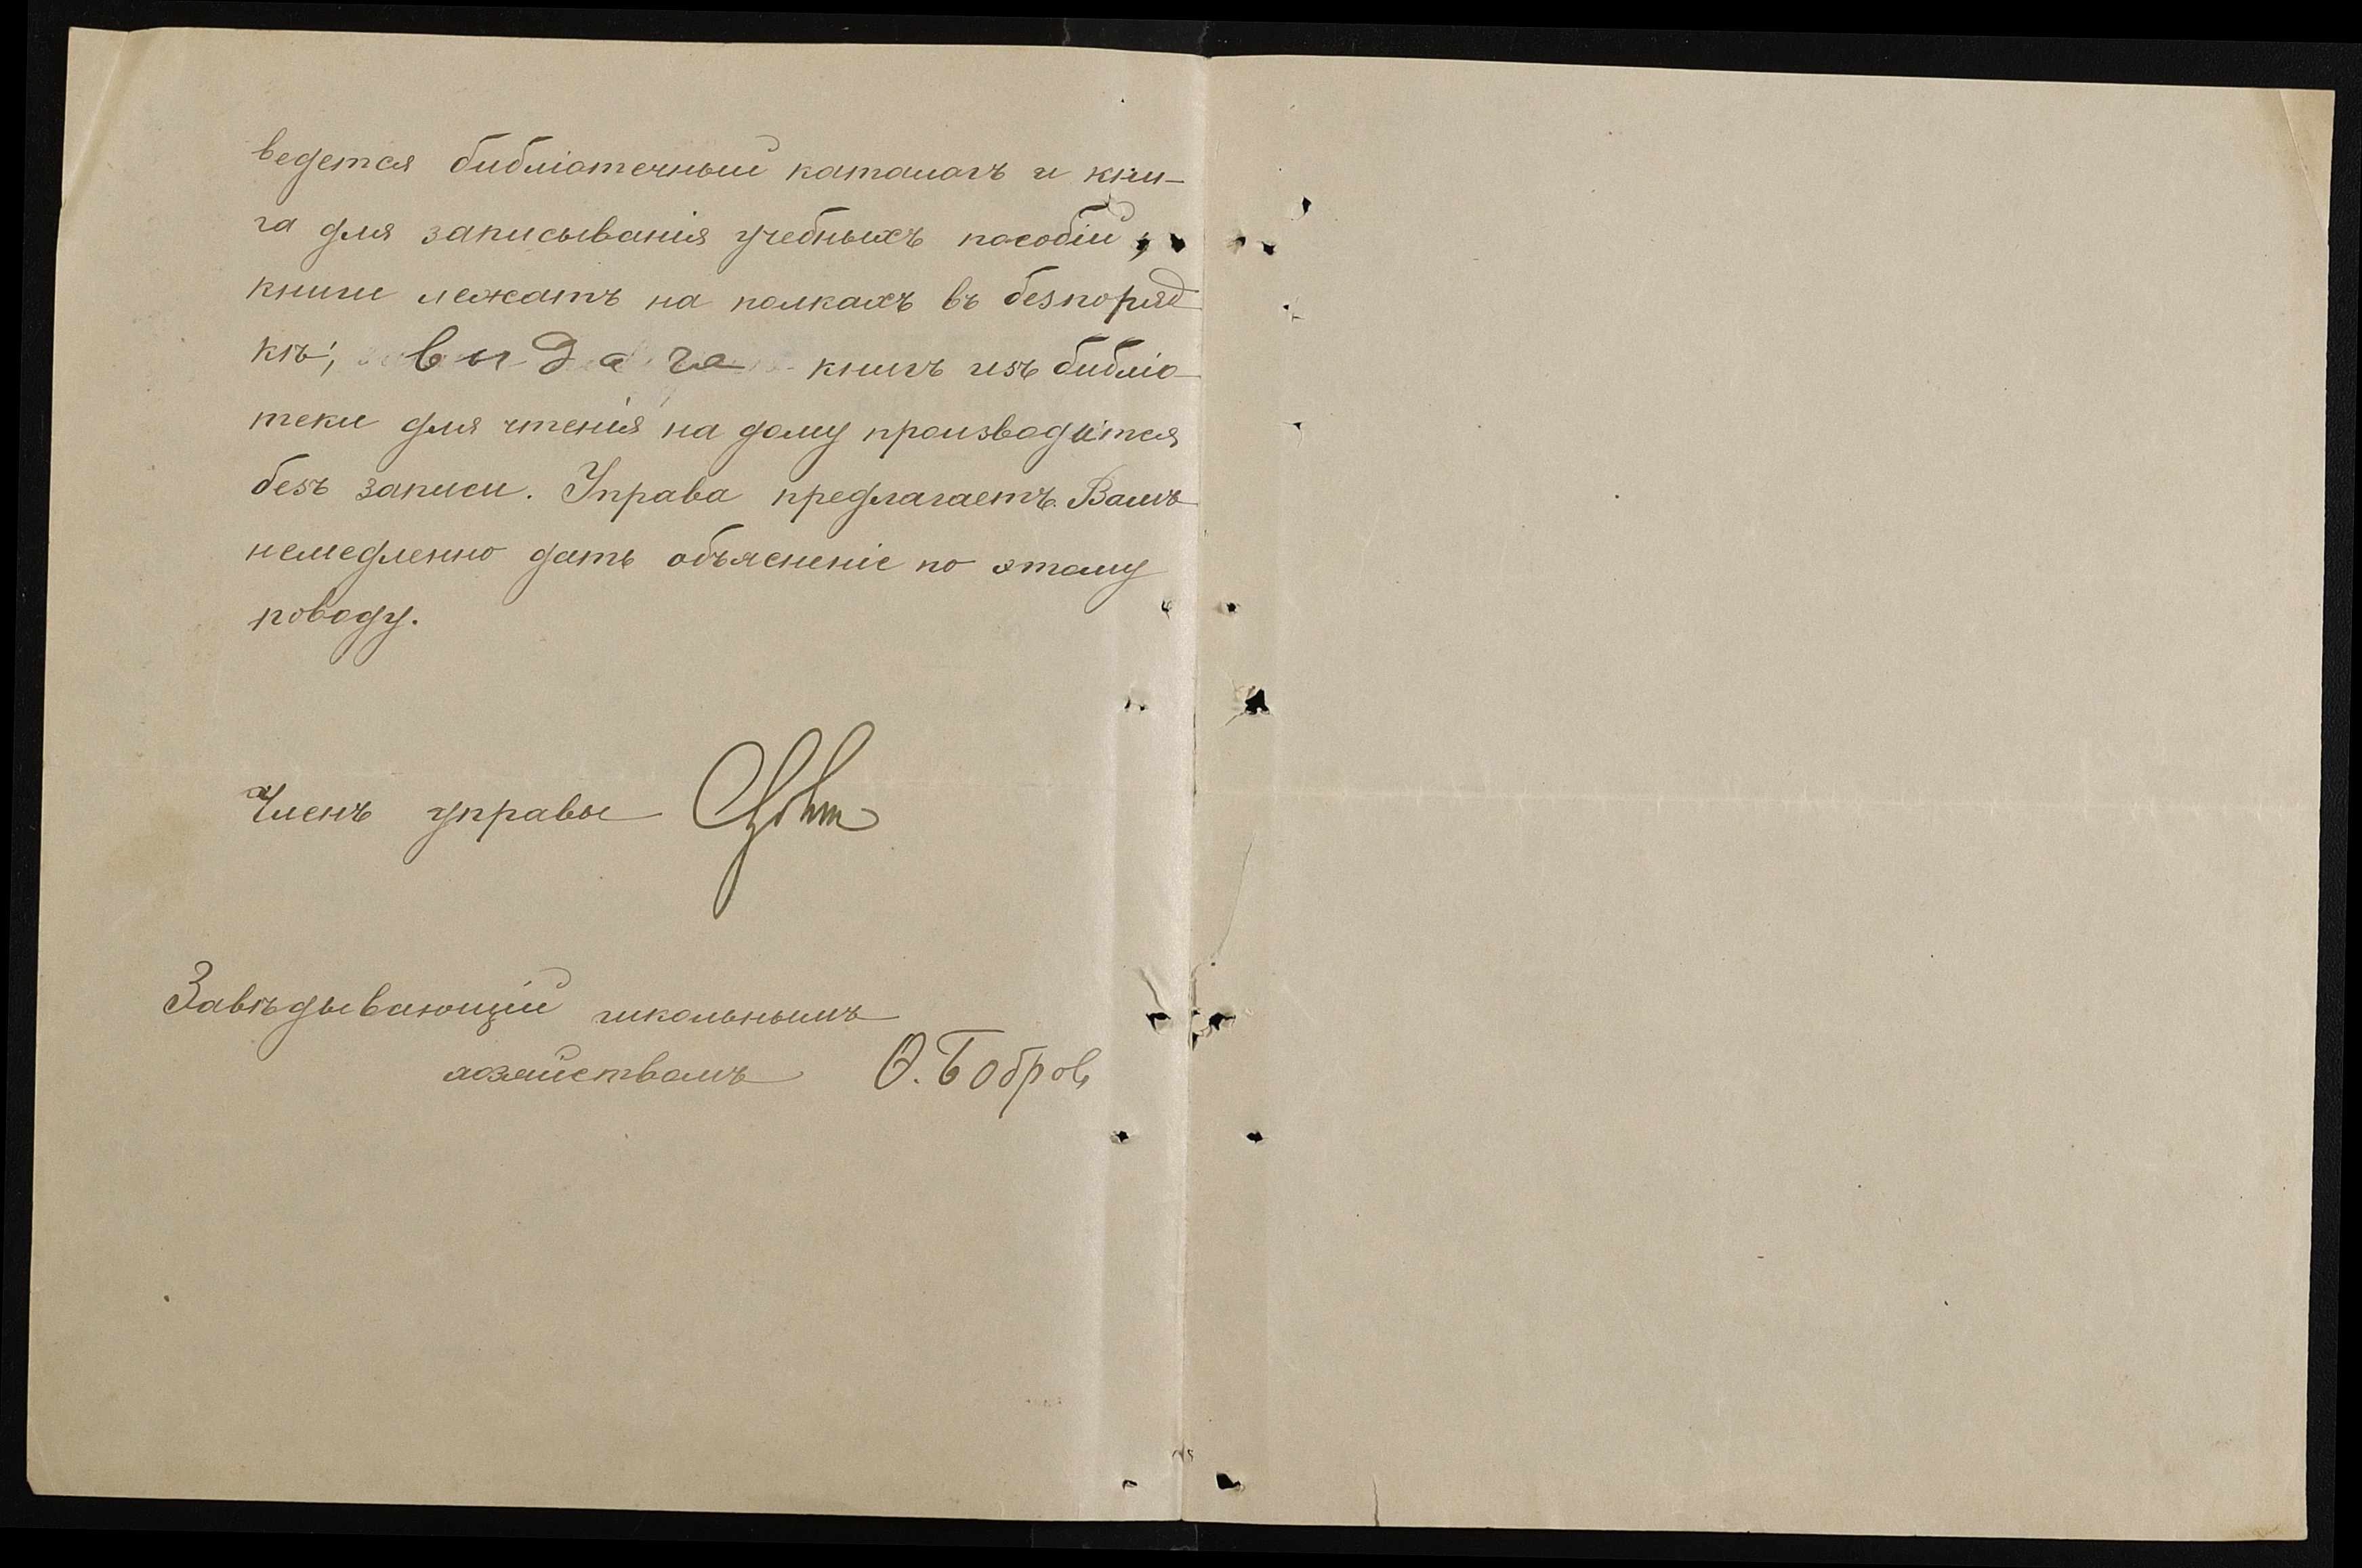 ведется библіотечный каталогъ и кни-
га для записыванія учебныхъ пособій,
книги лежатъ на полкахъ въ безпоряд
кѣ; выдача книгъ изъ библіо
теки для чтенія на дому производится
безъ записи. Управа предлагаетъ Вамъ
немедленно дать объясненіе по этому
поводу.
Членъ управы
Завѣдывающій школьнымъ
хозяйствомъ Ѳ. Бобров